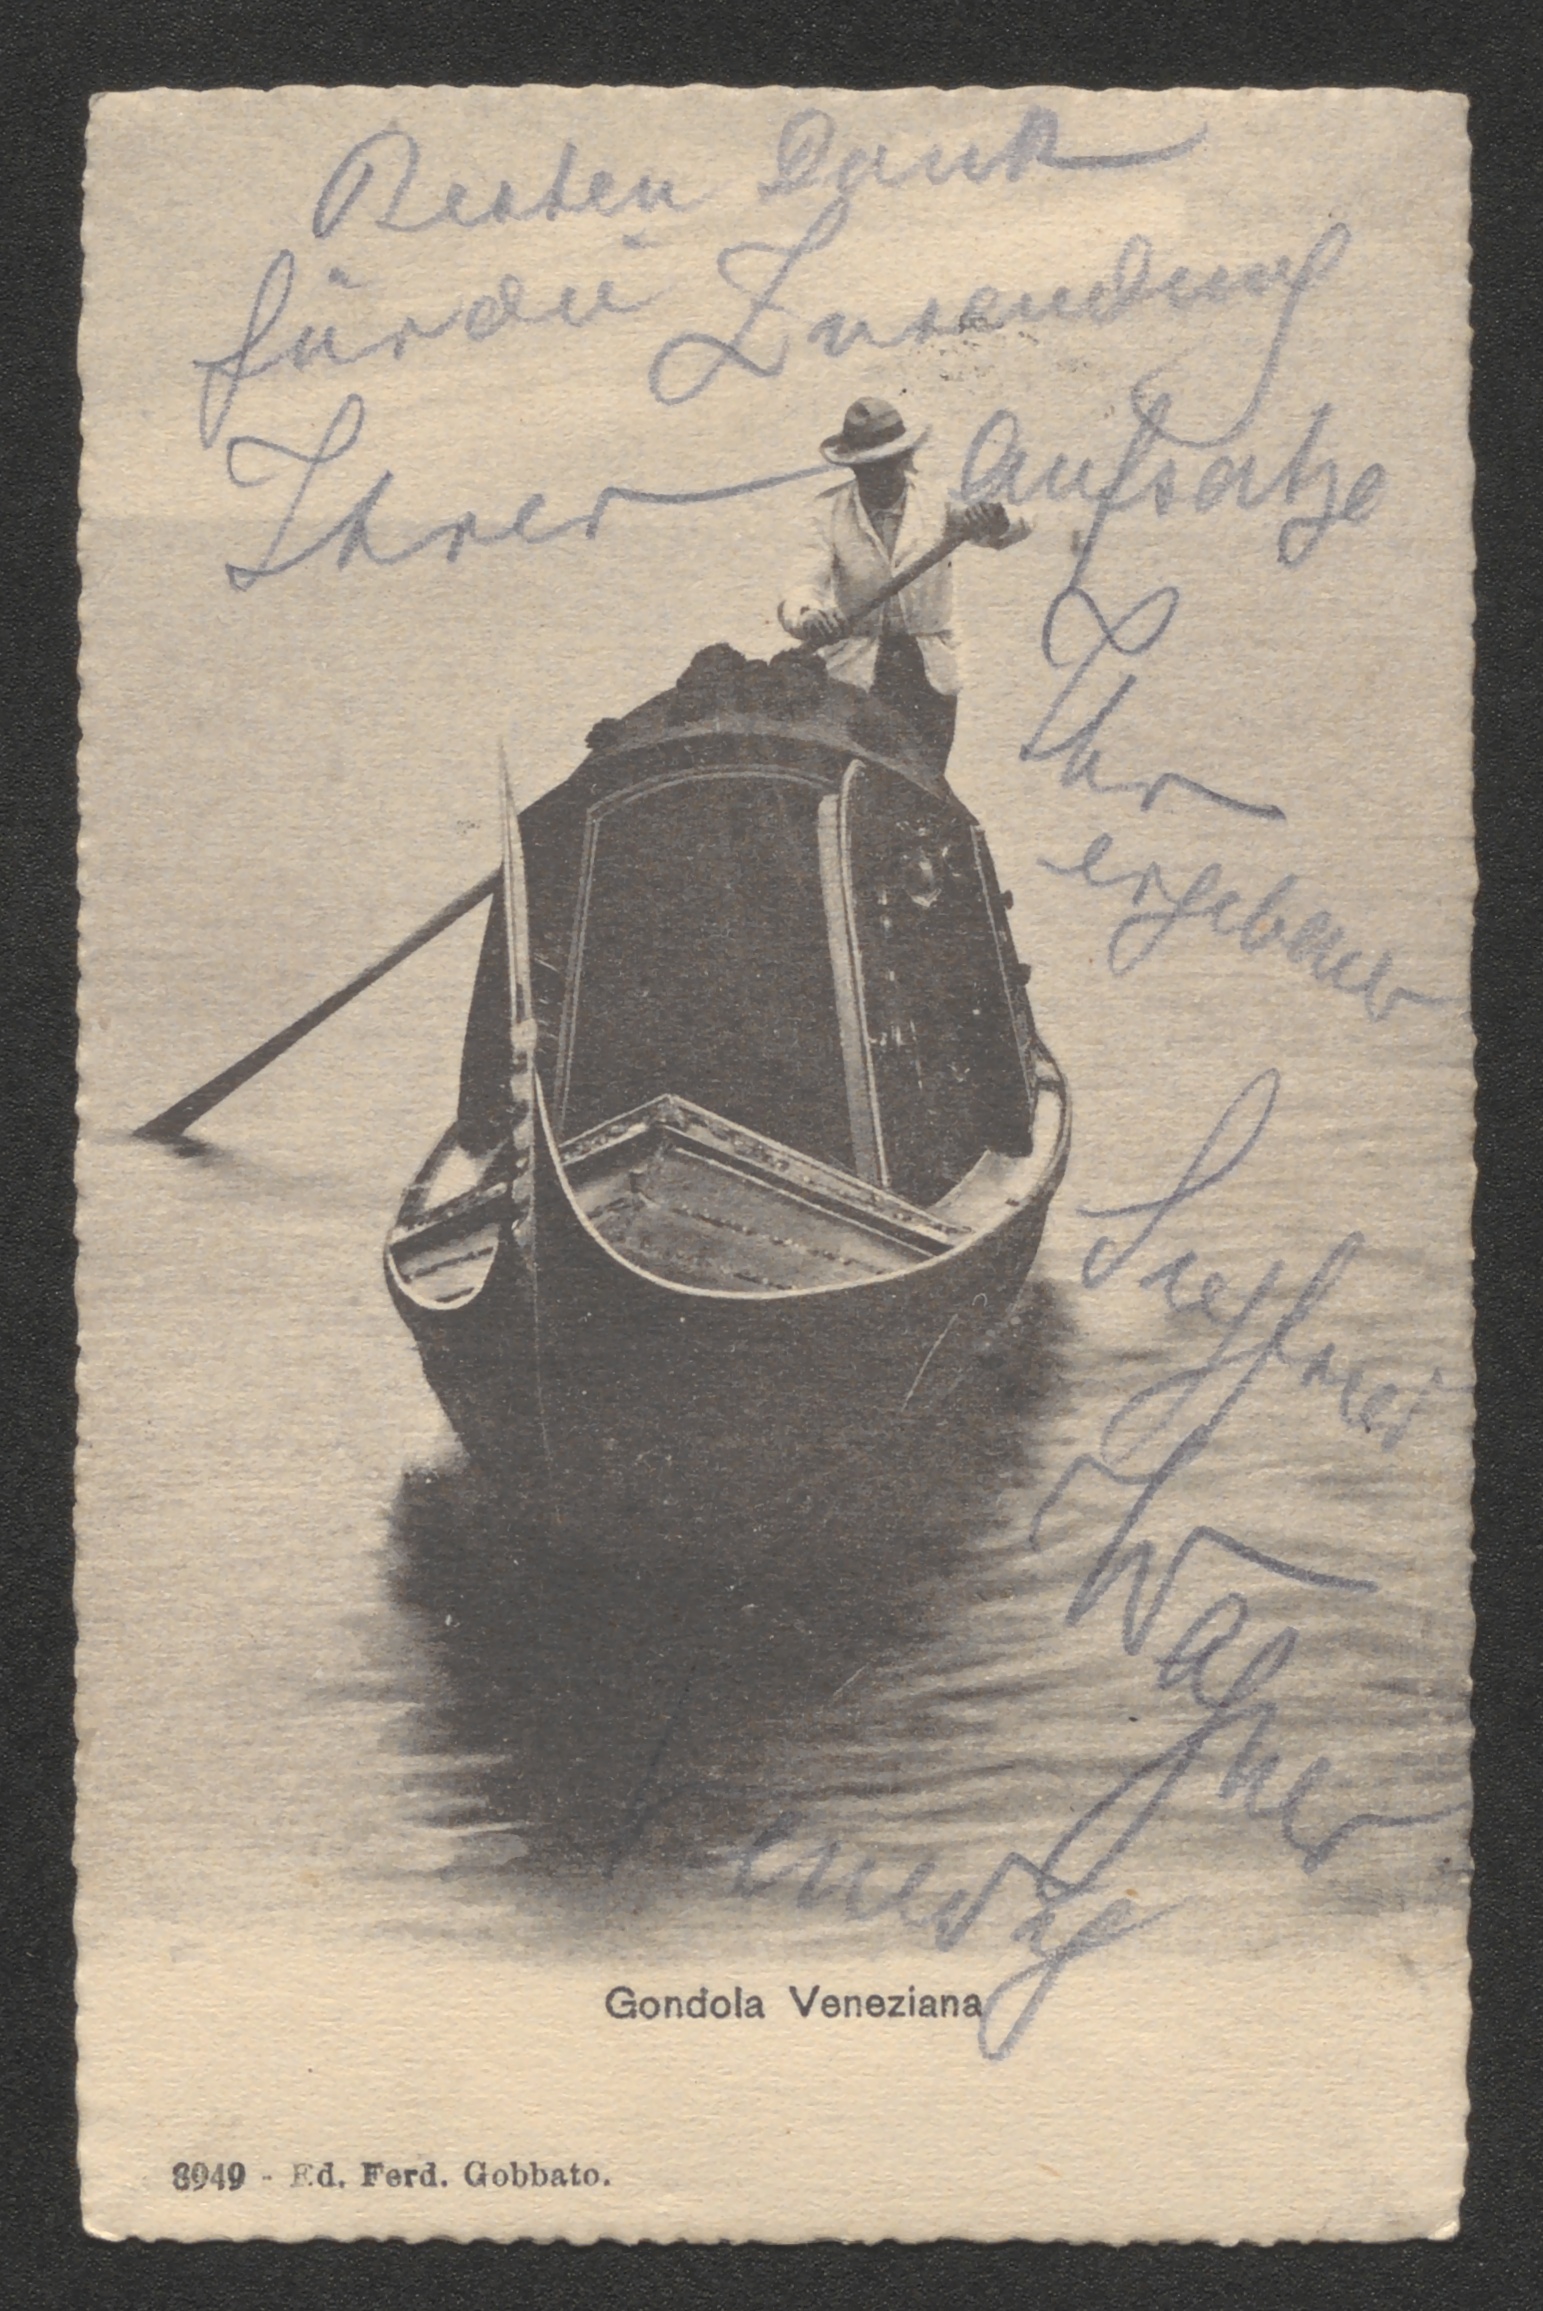 Besten Dank
für die Zusendung
Ihrer Aufsätze
Ihr
ergebener
Siegfried
Wagner
Venedig
Gondola Veneziana
8949 - Ed. Ferd. Gobbato.